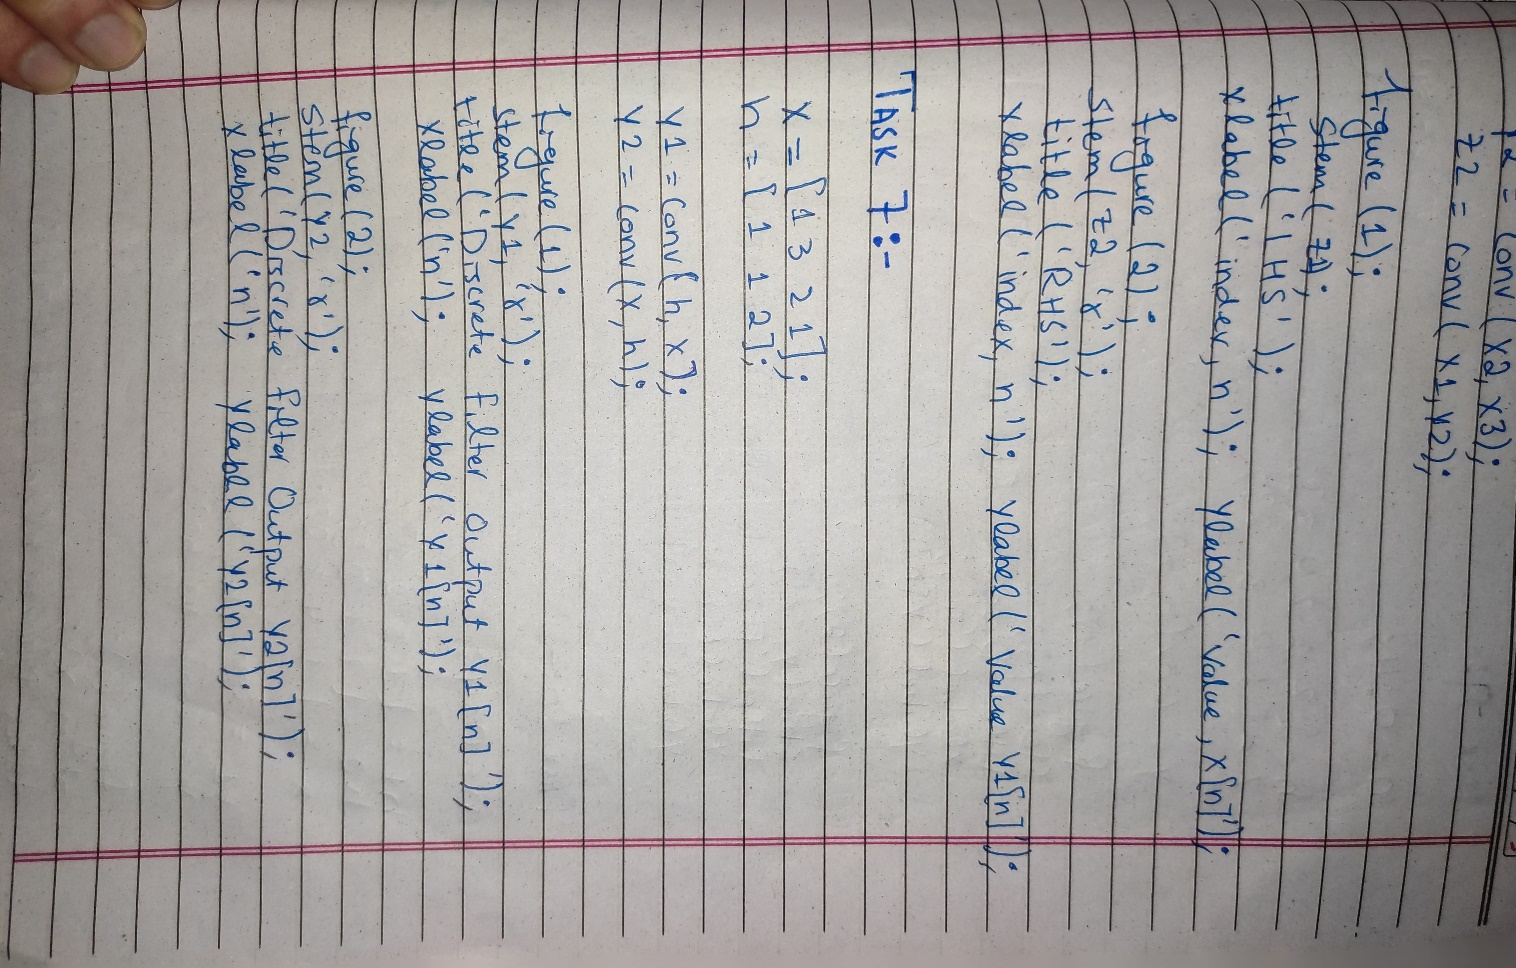 y2 = conv (x2, x3);
z2 = conv ( x1, y2);
figure (1);
stem ( z1);
title ( 'LHS' );
xlabel ( 'index, n'); ylabel ( 'value, x[n]');
figure (2);
stem ( z2, 'x' );
title ( 'RHS');
xlabel ( 'index, n'); ylabel ( 'value y1[n]');
TASK 7:-
x = [ 1 3 2 1];
h = [ 1 1 2];
y1 = conv(h, x);
y2 = conv (x, h);
figure (1);
stem ( y1, 'x');
title ( 'Discrete filter output y1[n] ');
xlabel ('n'); ylabel ( 'y1[n]');
figure (2);
stem( y2, 'x');
title( 'Discrete filter Output y2[n]');
xlabel ('n'); ylabel ('y2[n]');